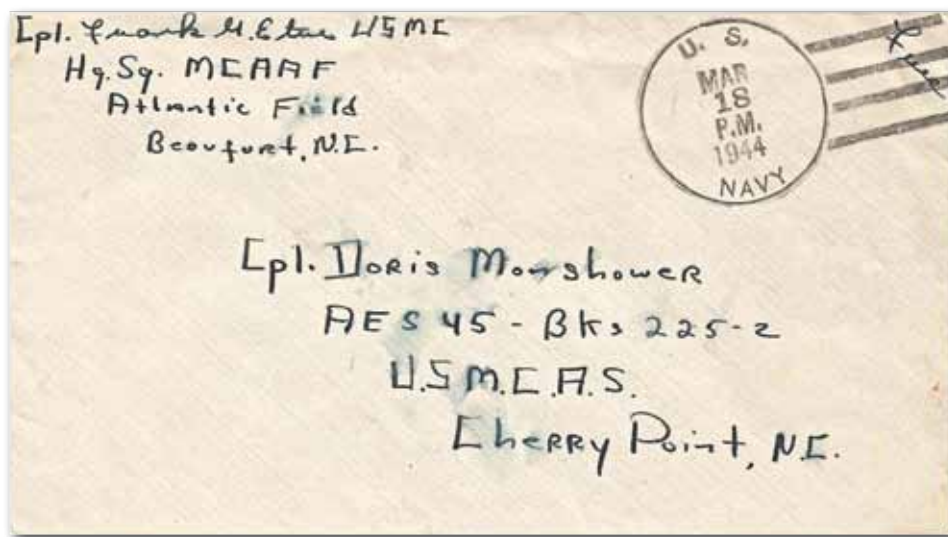 Cpl. Frank USMC
Hq. Sq. MCAAF
Atlantic Field
Beaufort, N.C.
U. S.
MAR
18
P.M.
1944
NAVY
Free
Cpl. Doris Monshower
AES 45 - Bks 225-2
U.S M.C.A.S.
Cherry Point, N.C.